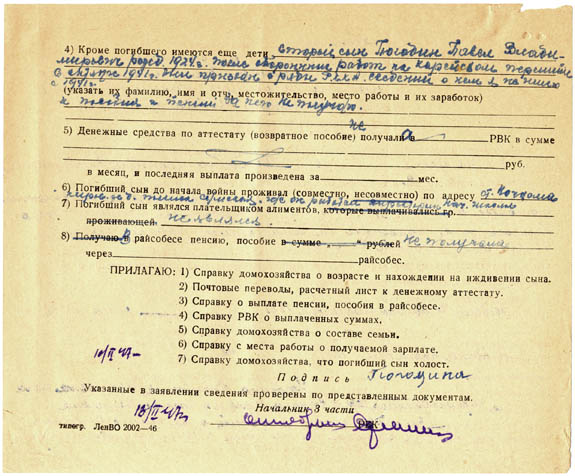 4) Кроме погибшего имеются еще дети, второй сын Погодин Павел Влади-
мирович рожд. 1924г. после оборонных работ на Карельском перешейке
в октябре 1941г. был призван в ряды Р.К.К.А. сведений о нем я не имею
с 1941г.
(указать их фамилию, имя и отч., местожительство, место работы и их заработок)
и пособия и пенсии за него не получаю.
5) Денежные средства по аттестату (возвратное пособие) не получала в РВК в сумме
руб.
в месяц, и последняя выплата произведена за мес.
6) Погибший сын до начала войны проживал (совместно, несовместно) по адресу ст.
где он работал нач. школы
7) Погибший сын являлся плательщиком алиментов, которые выплачивались гр.
проживающей не являлся.
8) Получаю в райсобесе пенсию, пособие в сумме „ “ рублей не получала
через райсобес.
ПРИЛАГАЮ: 1) Справку домохозяйства о возрасте и нахождении на иждивении сына.
2) Почтовые переводы, расчетный лист к денежному аттестату.
3) Справку о выплате пенсии, пособия в райсобесе.
4) Справку РВК о выплаченных суммах.
5) Справку домохозяйства о составе семьи.
6) Справку с места работы о получаемой зарплате.
10/II 47г.
7) Справку домохозяйства, что погибший сын холост.
Подпись Погодина
Указанные в заявлении сведения проверены по представленным документам.
18/II 47г.
Начальник 3 части
РВК
типогр. ЛенВО 2002—46